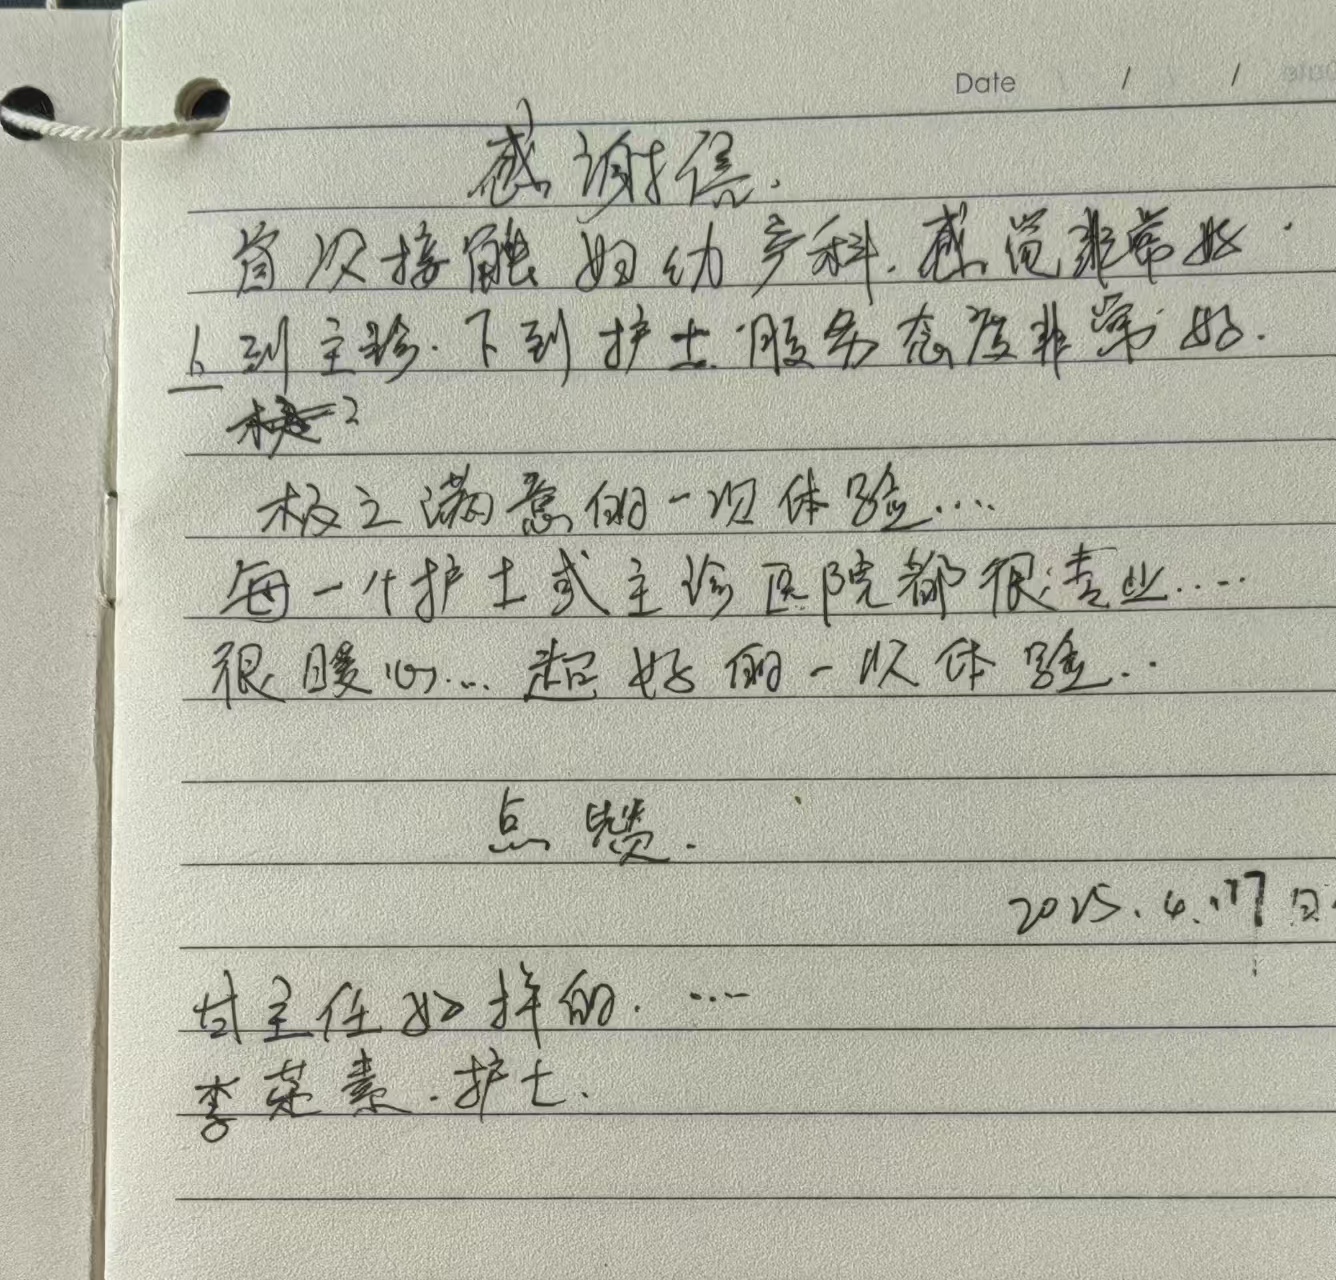 Date / /
感谢信.
首次接触妇幼产科.感觉非常好.
上到主诊.下到护士.服务态度非常好.
极之满意的一次体验....
每一个护士或主诊医院都很专业....
很暖心... 超好的一次体验..
点赞.
2025.4.17日
甘主任好样的. ....
李 素.护士.